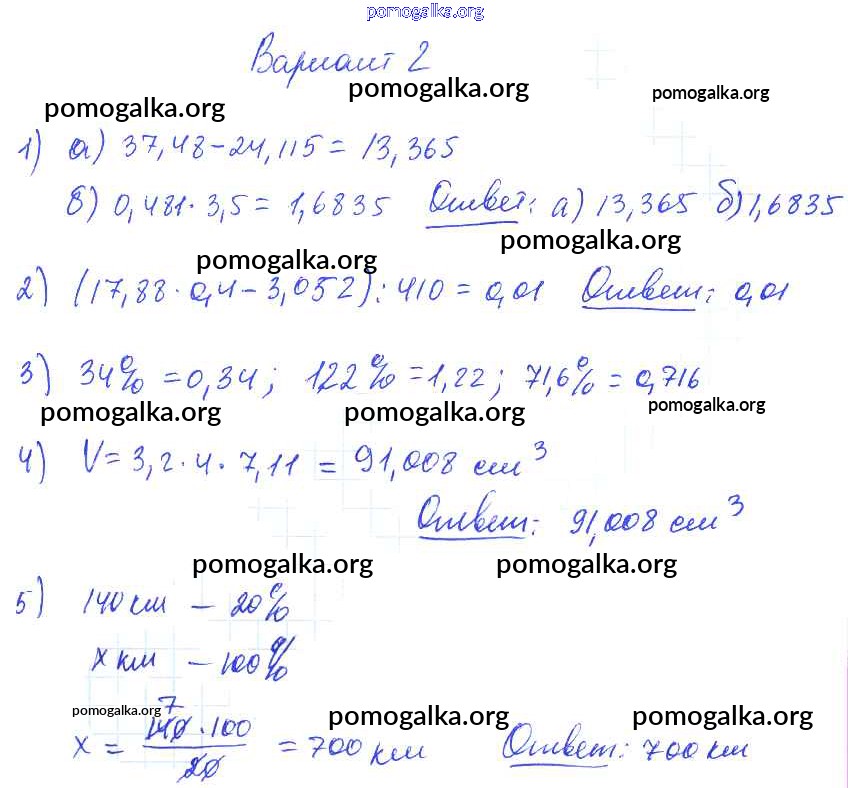 pomogalka.org
Вариант 2
pomogalka.org pomogalka.org pomogalka.org
1) а) 37,48-24,115 = 13,365
б) 0,481·3,5 = 1,6835 Ответ: а) 13,365 б) 1,6835
pomogalka.org pomogalka.org
2) (17,88·0,4-3,052):410 = 0,01 Ответ: 0,01
3) 34% = 0,34; 122% = 1,22; 71,6% = 0,716
pomogalka.org pomogalka.org pomogalka.org
4) V = 3,2·4·7,11 = 91,008 см³
Ответ: 91,008 см³
pomogalka.org pomogalka.org
5) 140 см - 20%
x км - 100%
pomogalka.org 7 pomogalka.org pomogalka.org
x = 140·100 / 20 = 700 км Ответ: 700 км